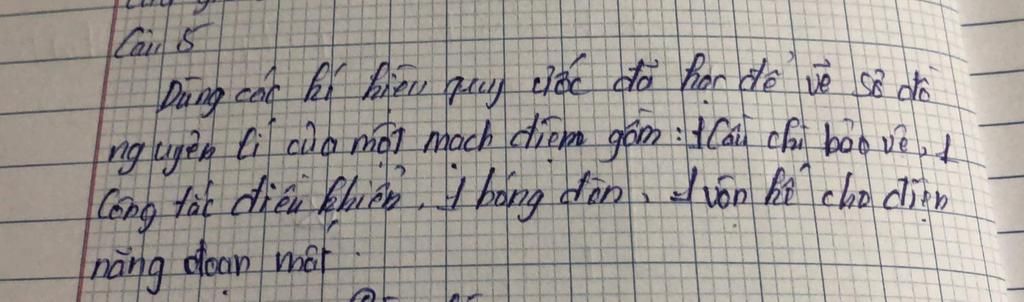 Câu 5
Dùng các kí hiệu quy ước đã học để vẽ sơ đồ
nguyên lí của một mạch điện gồm: 1 Cầu chì bảo vệ, 1
Công tắc điều khiển, 1 bóng đèn, 1 vôn kế cho điện
năng đoạn mạch